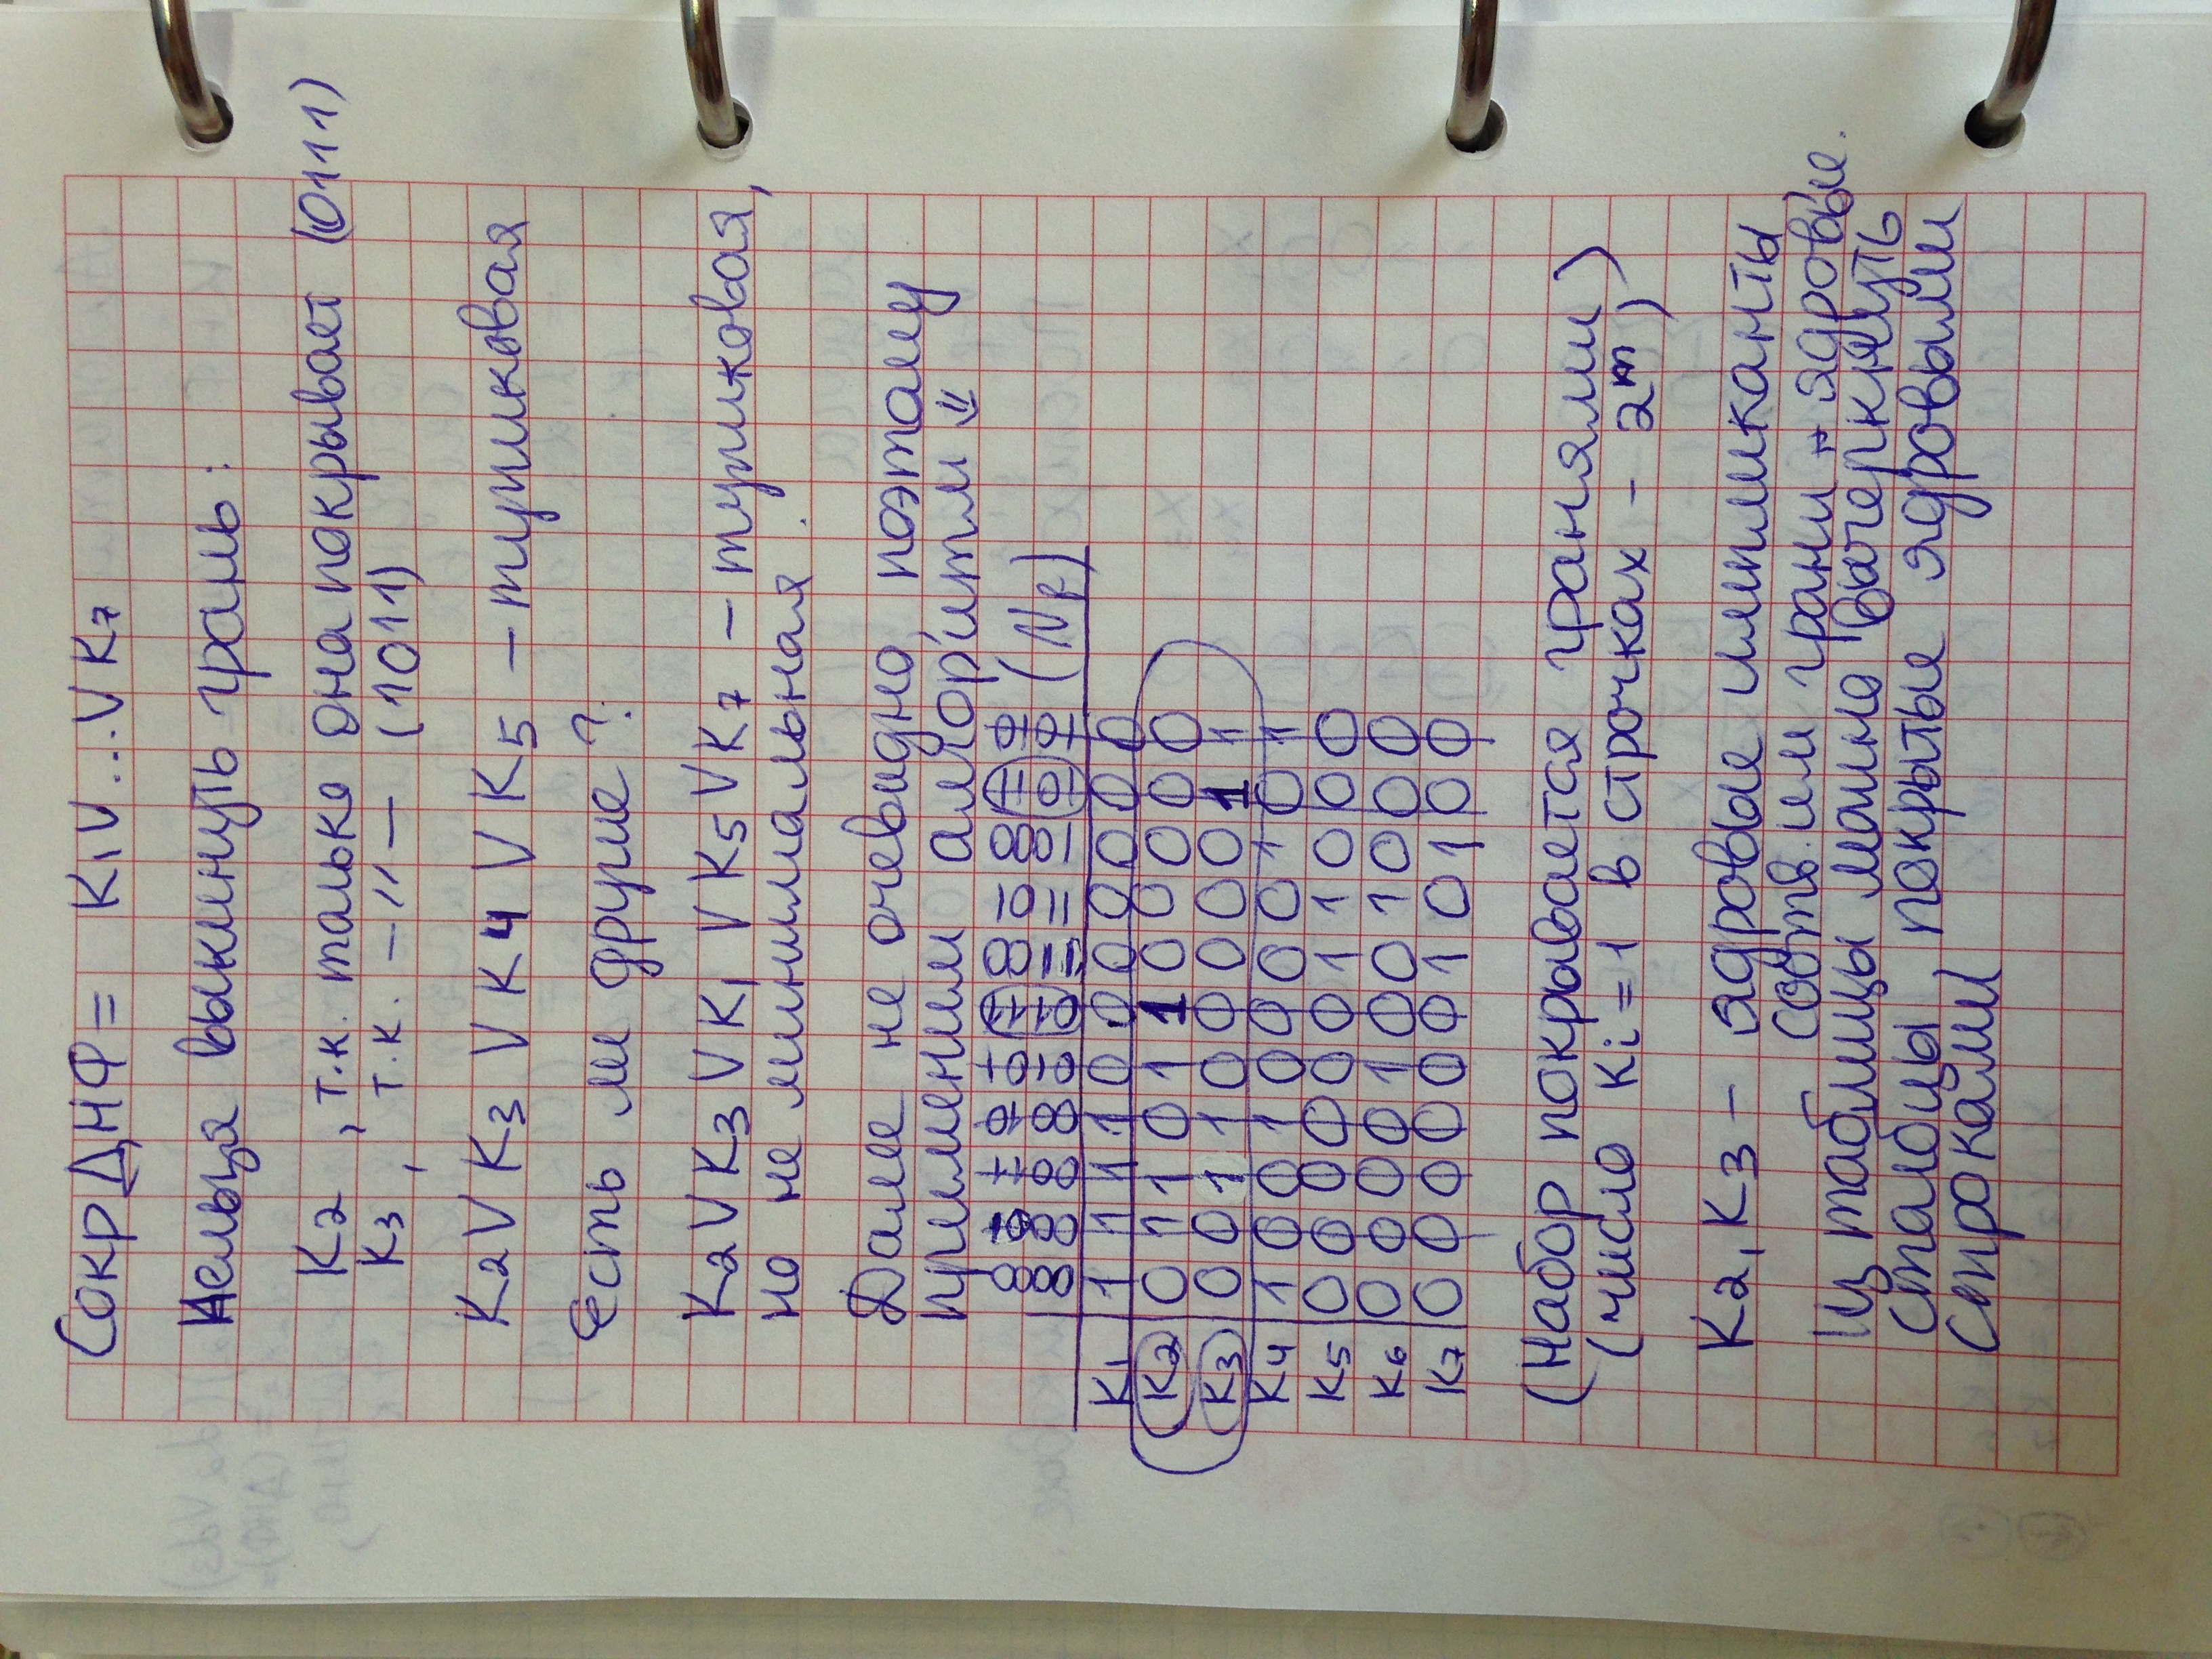 Сокр ДНФ = K1 V ... V K7
Нельзя выкинуть грань:
K2, т.к. только она покрывает (0111)
K3, т.к. —〃— (1011)
K2 V K3 V K4 V K5 — тупиковая
Есть ли другие?
K2 V K3 V K1 V K5 V K7 — тупиковая,
но не минимальная.
Далее не очевидно, поэтому
применим алгоритм ⇓
(Nf)
K1 1 1 1 1 0 0 0 0 0 0 0
K2 0 1 1 0 1 1 0 0 0 0 0
K3 0 0 1 1 0 0 0 0 0 1 1
K4 1 0 0 1 0 0 0 0 1 0 1
K5 0 0 0 0 0 0 1 1 0 0 0
K6 0 0 0 0 1 0 0 1 0 0 0
K7 0 0 0 0 0 0 1 0 1 0 0
(Набор покрывается гранями)
(число Ki = 1 в строчках - 2^m)
K2, K3 — ядровые импликанты
соотв. им грани - ядровые.
Из таблицы можно вычеркнуть
столбцы покрытые ядровыми
строками